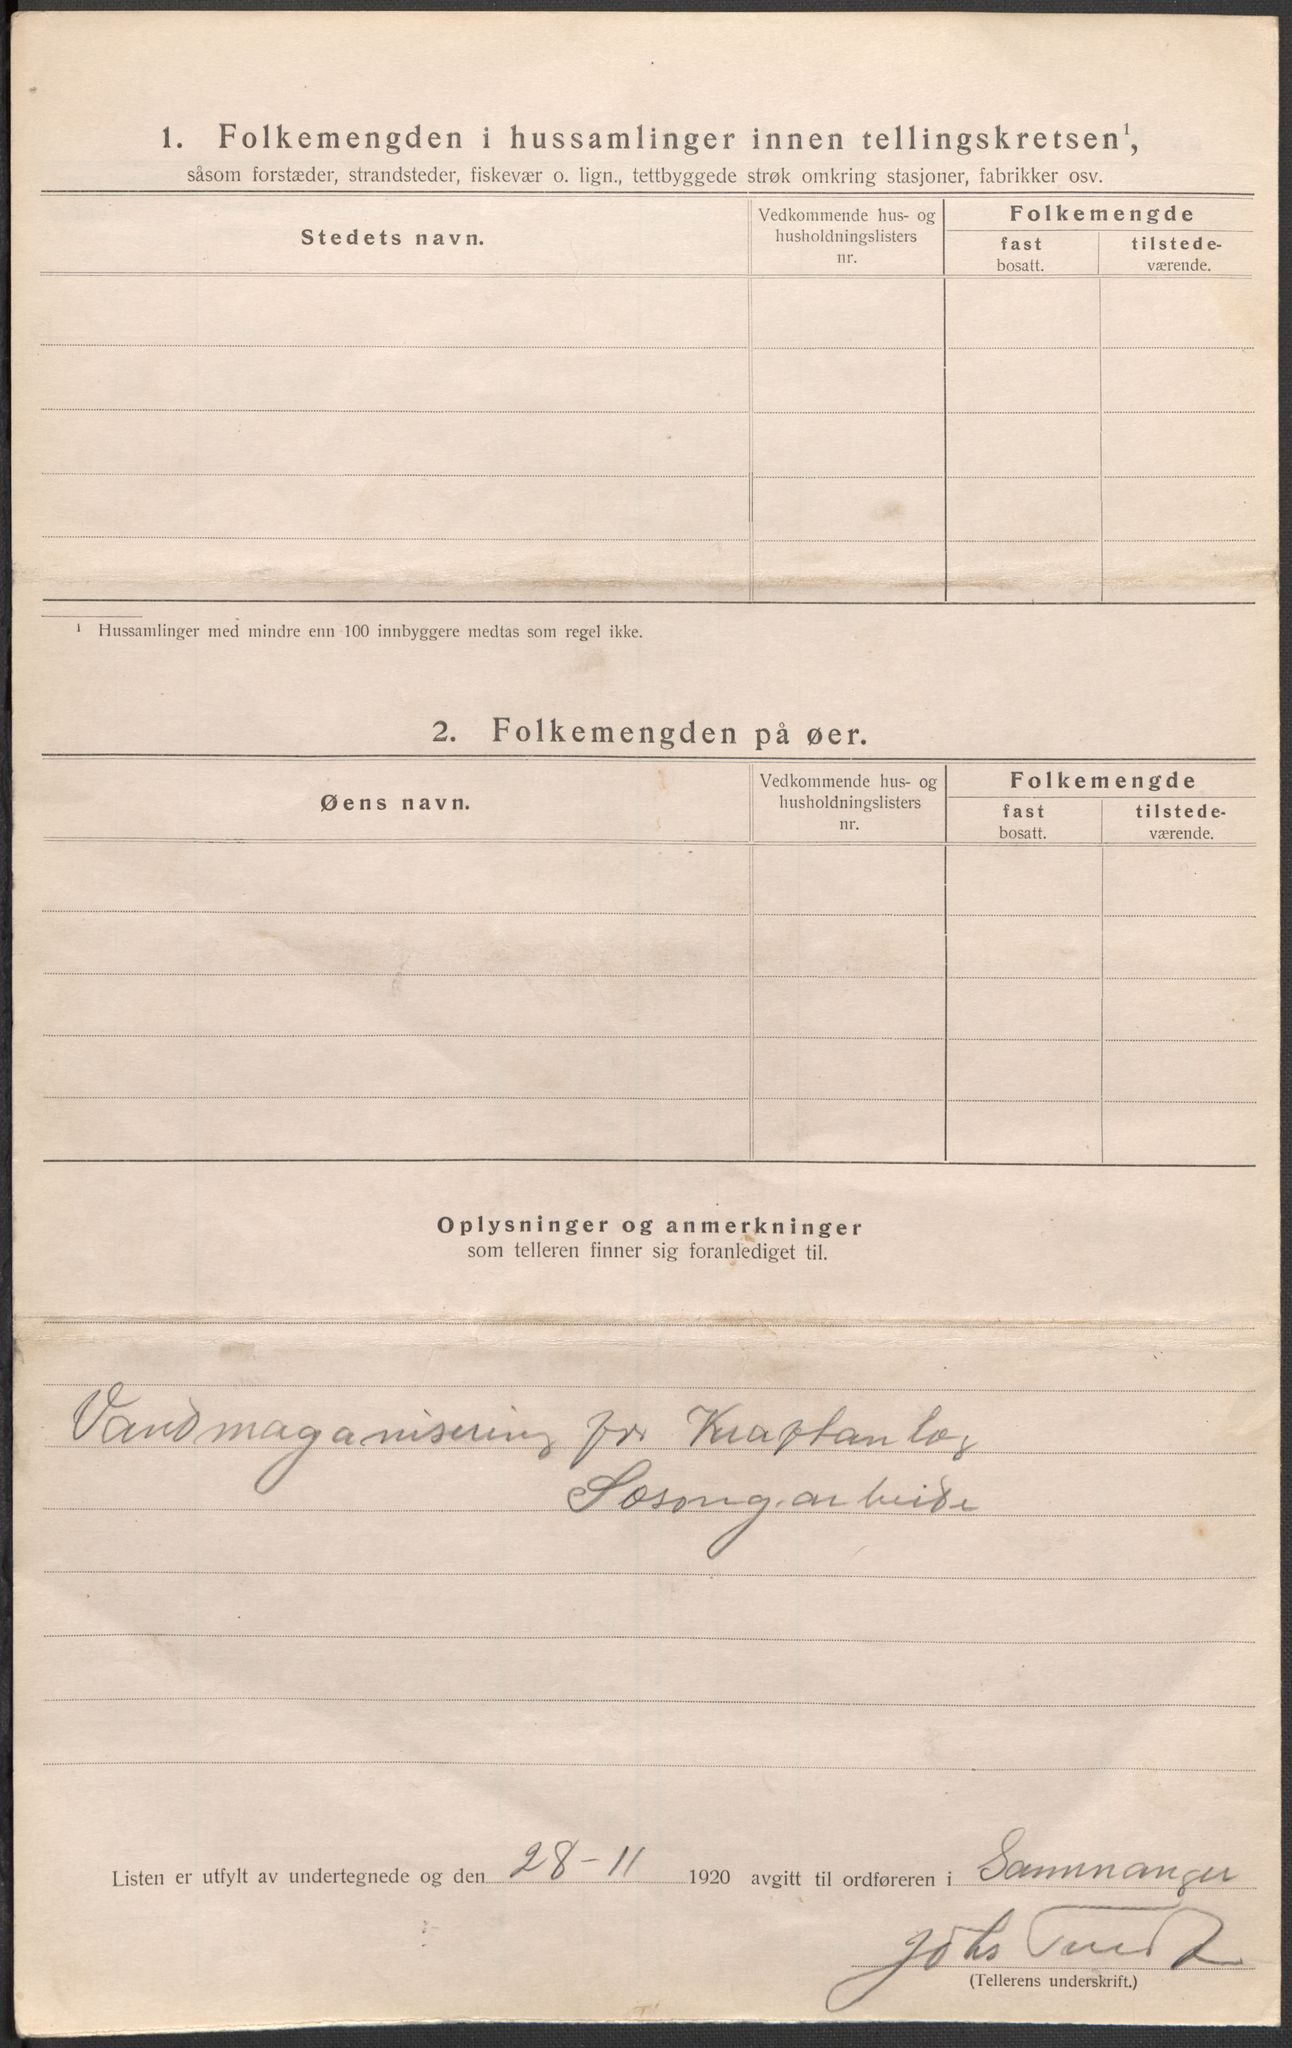 1. Folkemengden i hussamlinger innen tellingskretsen¹,
såsom forstæder, strandsteder, fiskevær o. lign., tettbyggede strøk omkring stasjoner, fabrikker osv.
Stedets navn.
Vedkommende hus- og
husholdningslisters
nr.
Folkemengde
fast
bosatt.
tilstede-
værende.
¹ Hussamlinger med mindre enn 100 innbyggere medtas som regel ikke.
2. Folkemengden på øer.
Øens navn.
Vedkommende hus- og
husholdningslisters
nr.
Folkemengde
fast
bosatt.
tilstede-
værende.
Oplysninger og anmerkninger
som telleren finner sig foranlediget til.
Vandmaganisering for Kraftanlæg
Sæsongarbeide
Listen er utfylt av undertegnede og den 28-11 1920 avgitt til ordføreren i Samnanger
Johs
(Tellerens underskrift.)